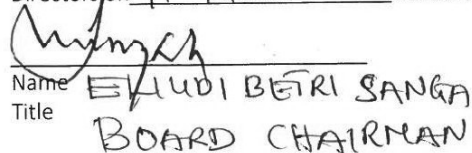 Name EHUDI BETRI SANGA
Title
BOARD CHAIRMAN